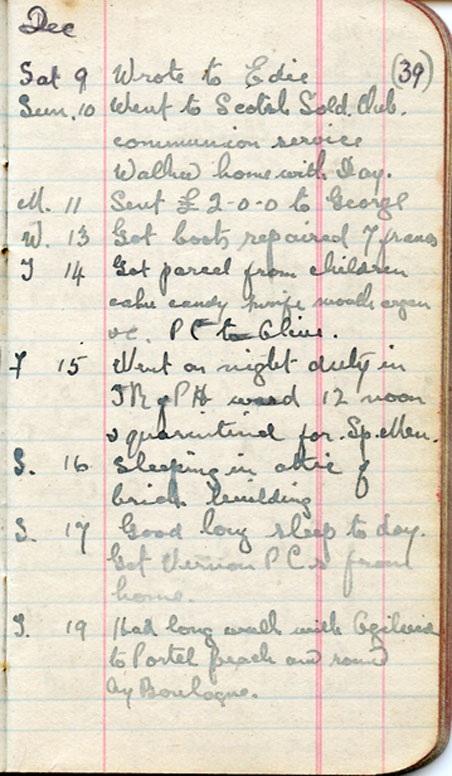 Dec
(39)
Sat 9 Wrote to Edie
Sun. 10 Went to Scotch Sold. Club.
communion service
Walked home with Day.
M. 11 Sent £2-0-0 to George
W. 13 Got boots repaired 7 francs
T 14 Got parcel from children
cake candy knife mouth organ
&c. PC to Clive.
F 15 Went on night duty in
ward 12 noon
& quarintind for Sp. Men.
S. 16 Sleeping in attic of
brick building
S. 17 Good long sleep to day.
Got Vernon P C s from
home.
T. 19 Had long walk with Ogilvie
to Portel peach and round
by Boulogne.